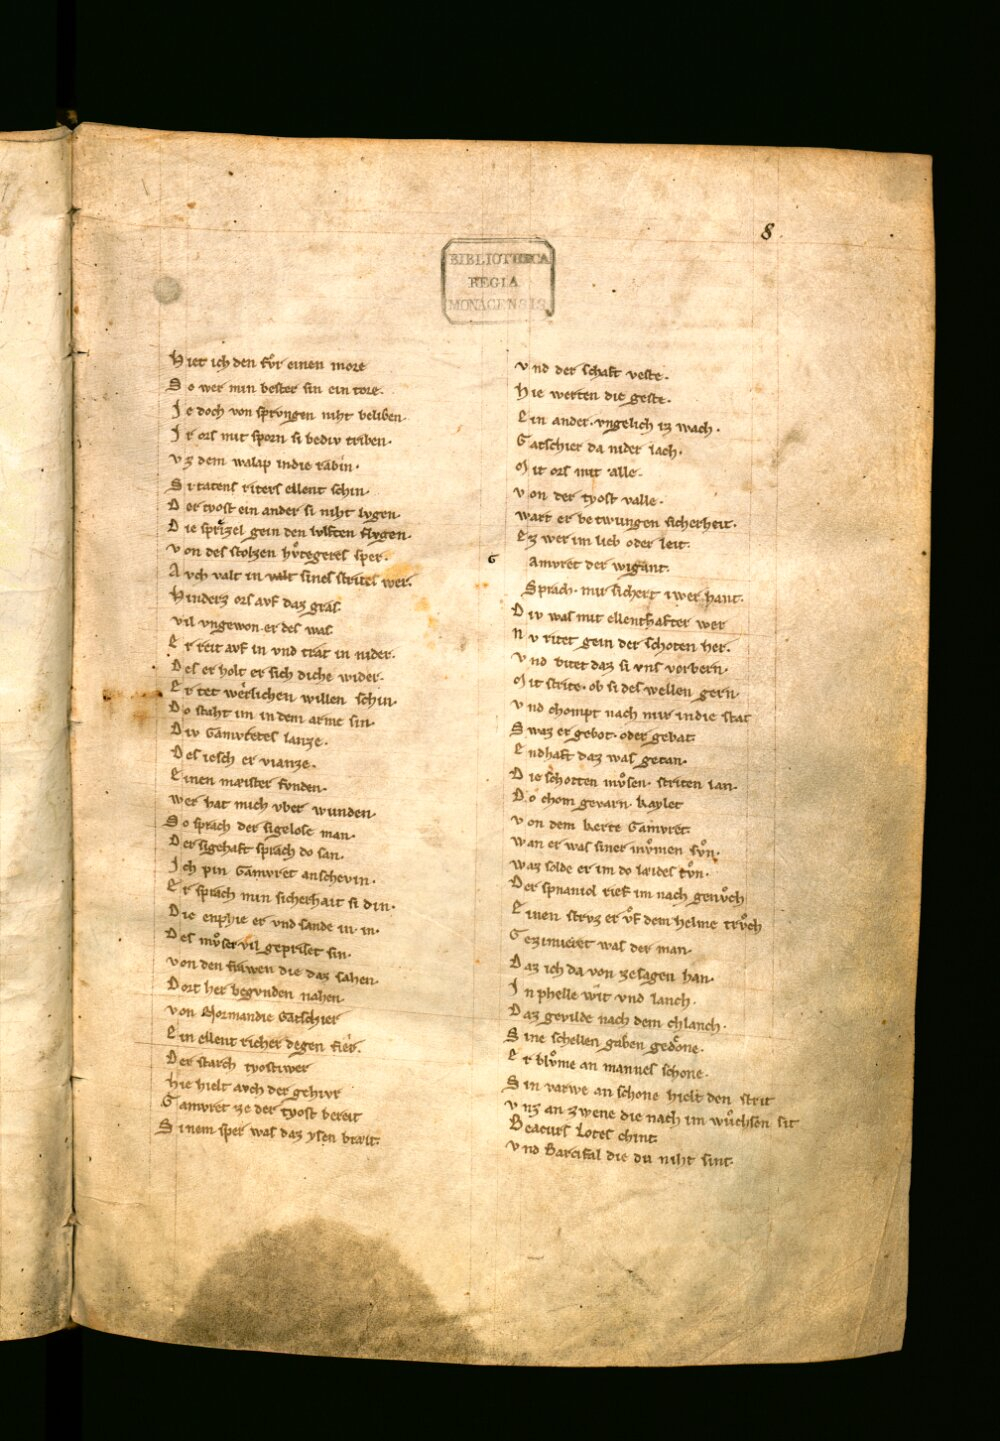 8
BIBLIOTHECA
REGIA
MONACENSIS
Hiet ich den fvͦr einen more
So wer min bester sin ein tore.
Je doch von sprvngen niht beliben.
Jr ors mit sporn si bediv triben.
vz dem walap indie rabin.
Si tatens riters ellent schin.
Der tyost ein ander si niht lvgen.
Die sprizel gein den lvften flvgen.
von des stolzen hvͤtegeres sper.
Avch valt in valt sines strites wer.
Hinderz ors avf daz gras
vil vngewon er des was
Er reit avf in vnd trat in nider.
Des er holt er sich diche wider.
Er tet werlichen willen schin.
Do staht im in dem arme sin.
Div Gamvretes lanze.
Des iesch er vianze.
Einen mæister fvnden.
wer hat mich vber wunden.
So sprach der sigelose man.
Der sigehaft sprach do san.
Jch pin Gamvret anschevin.
Er sprach min sicherhait si din.
Die enphie er vnd sande in in.
Des mvͦser vil gepriset sin.
von den frawen die daz sahen.
Dort her begvnden nahen.
von Normandie Gatschier
Ein ellent richer degen fier.
Der starch tyostiwer
hie hielt avch der gehivr
Gamvret ze der tyost bereit
Sinem sper was daz ysen brait.
vnd der schaft veste.
hie werten die geste.
Ein ander. vngelich iz wach.
Gatschier da nider lach.
Mit ors mit alle.
von der tyost valle.
wart er betwungen sicherheit.
Ez wer im lieb oder leit.
G
amvret der wigant.
Sprach. mir sichert iwer hant.
Div was mit ellenthafter wer
Nv ritet gein der schoten her.
vnd bitet daz si vns verbern.
Mit strite. ob si des wellen gern
vnd chompt nach mir indie stat
Swaz er gebot. oder gebat.
Endhaft daz was getan.
Die schotten mvͦsen. striten lan.
Do chom gevarn. kaylet
von dem kerte Gamvret.
wan er was siner mvͦmen svͦn.
waz solde er im do læides tvͦn.
Der spnaniol rief im nach genvͦch
Einen strvz er vͦf dem helme trvͦch
Gezimieret was der man.
Daz ich da von ze sagen han.
Jn phelle wit vnd lanch.
Daz gevilde nach dem chlanch.
Sine schellen gaben gedoͤne.
Er blvͦme an mannes schone.
Sin varwe an schone hielt den strit
vnz an zwene die nach im wvͦchsen sit
Beacurs Lotes chint.
vnd Barcifal die du niht sint.